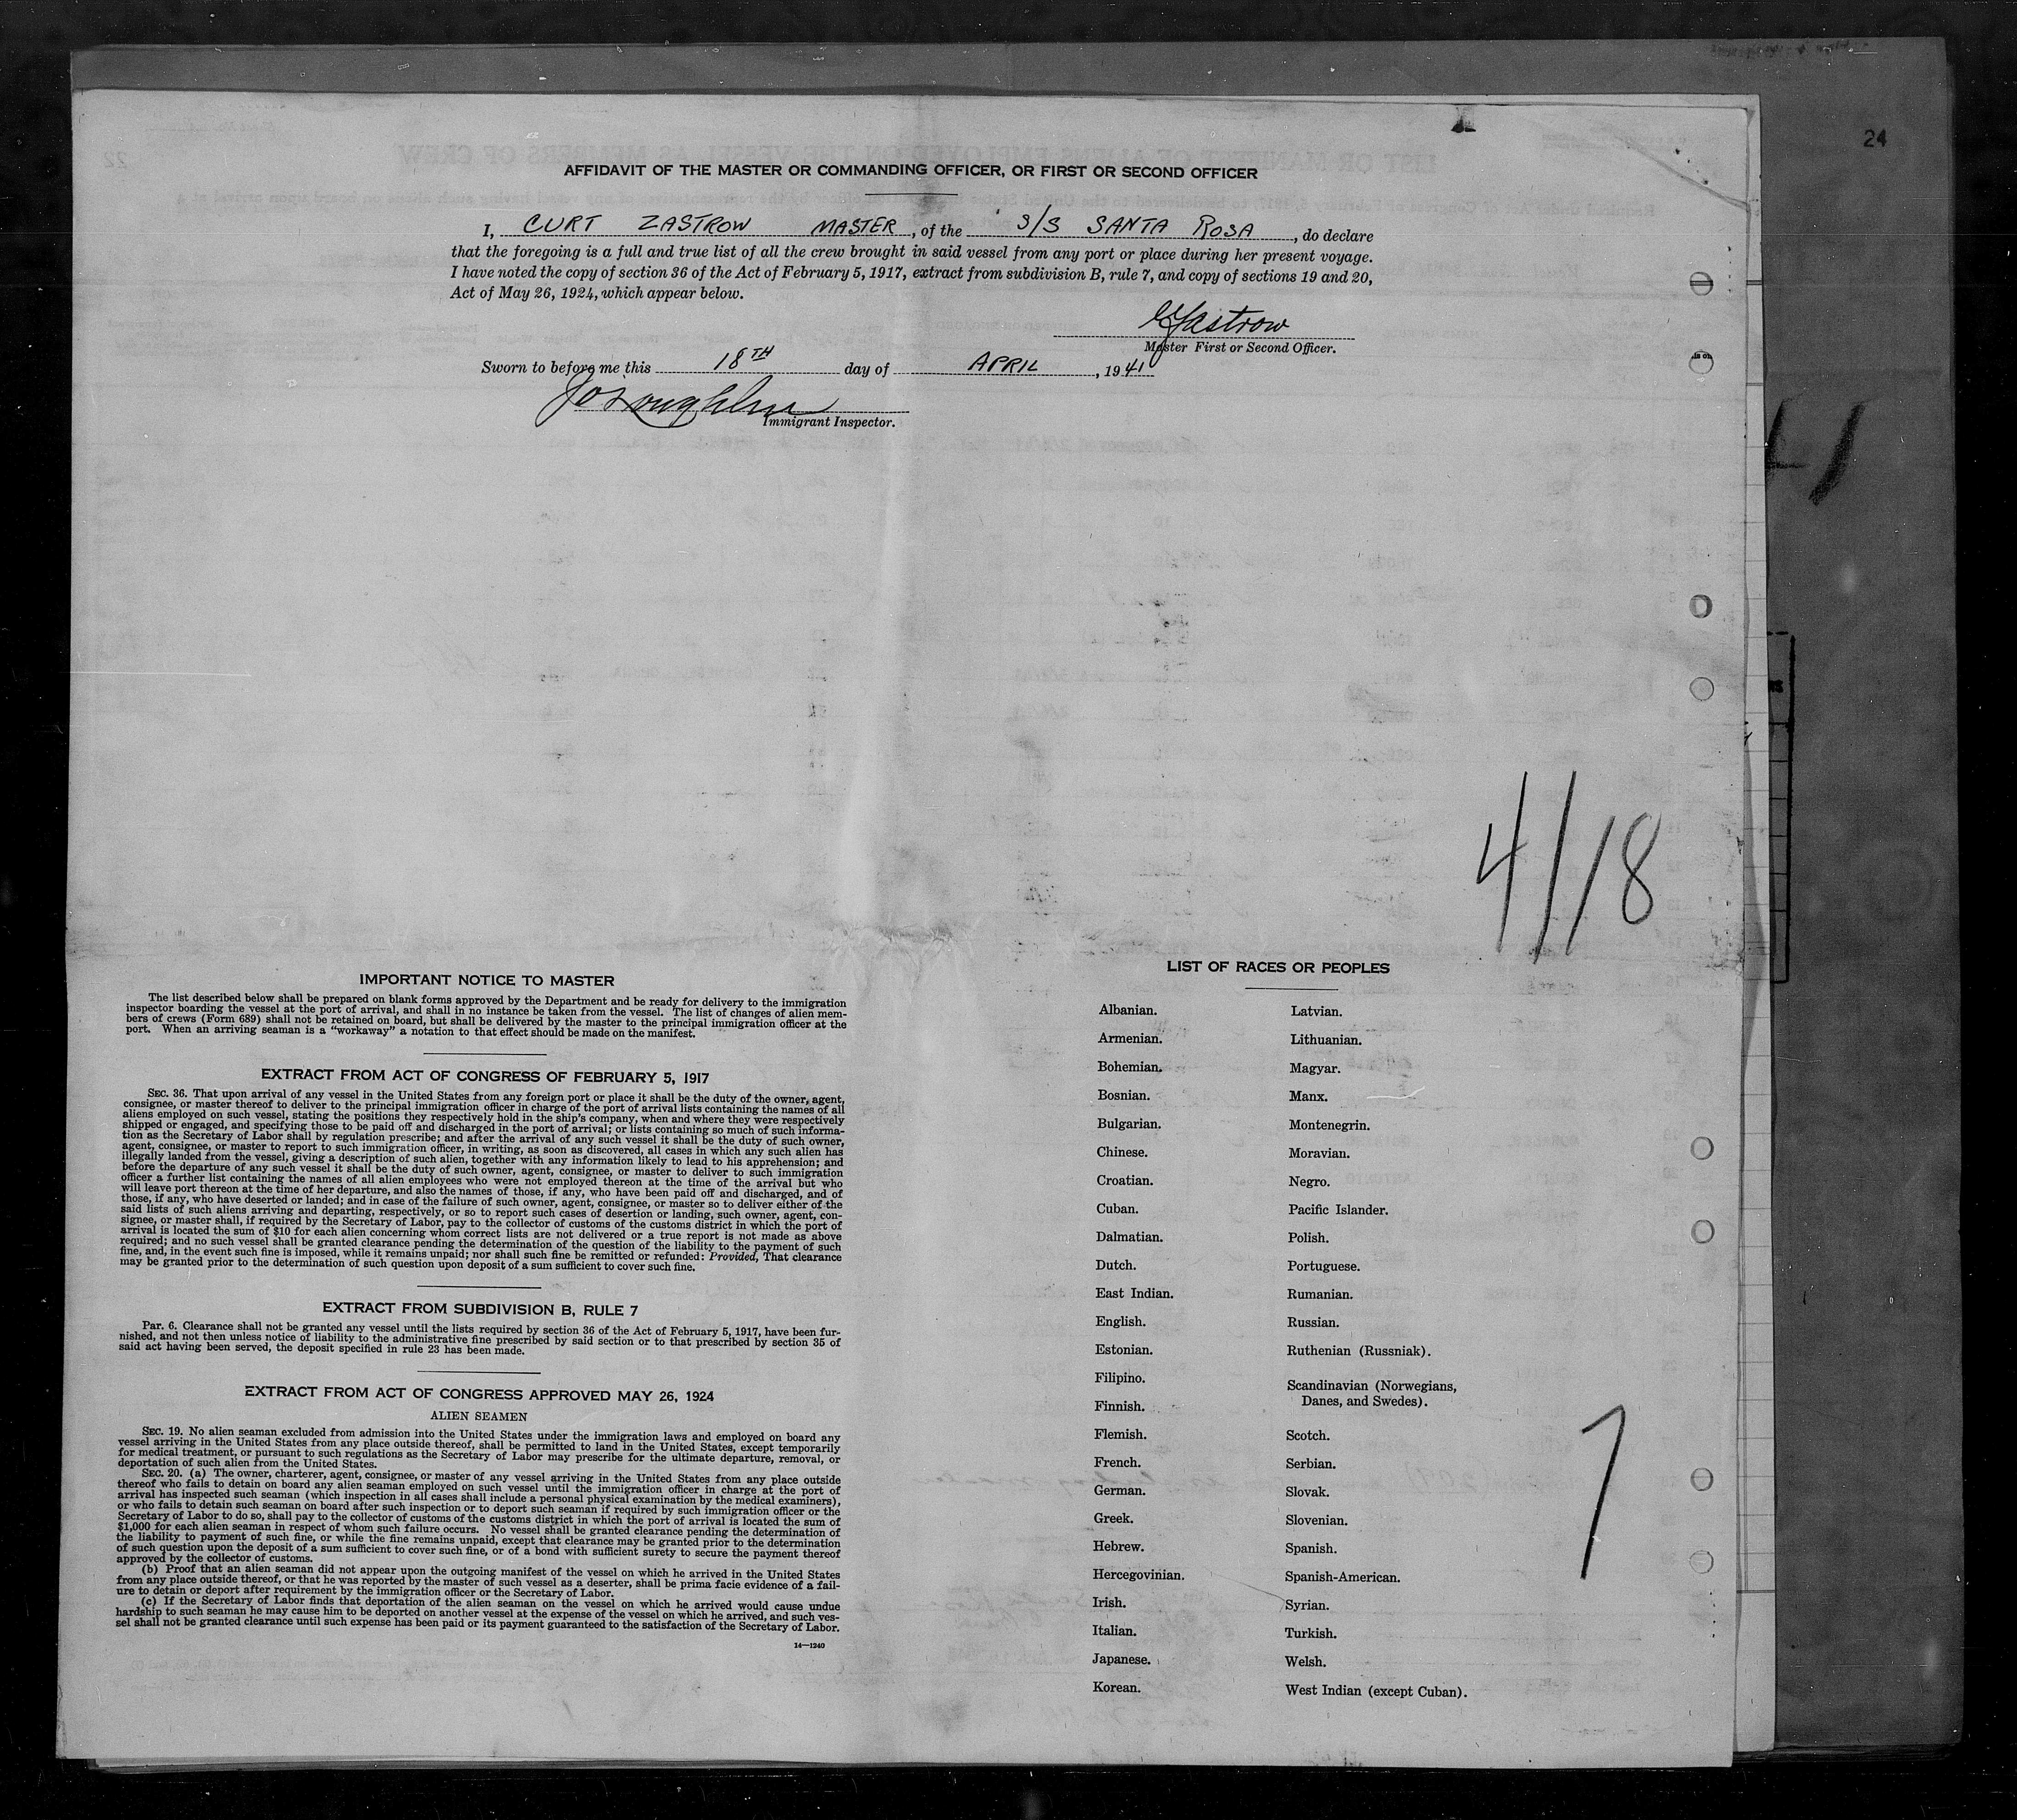 24
AFFIDAVIT OF THE MASTER OR COMMANDING OFFICER, OR FIRST OR SECOND OFFICER
I, CURT ZASTROW MASTER, of the S/S SANTA ROSA, do declare
that the foregoing is a full and true list of all the crew brought in said vessel from any port or place during her present voyage.
I have noted the copy of section 36 of the Act of February 5, 1917, extract from subdivision B, rule 7, and copy of sections 19 and 20,
Act of May 26, 1924, which appear below.
CZastrow
Master First or Second Officer.
Sworn to before me this 18TH day of APRIL, 1941
Immigrant Inspector.
4/18
IMPORTANT NOTICE TO MASTER
The list described below shall be prepared on blank forms approved by the Department and be ready for delivery to the immigration
inspector boarding the vessel at the port of arrival, and shall in no instance be taken from the vessel. The list of changes of alien mem-
bers of crews (Form 689) shall not be retained on board, but shall be delivered by the master to the principal immigration officer at the
port. When an arriving seaman is a “workaway” a notation to that effect should be made on the manifest.
EXTRACT FROM ACT OF CONGRESS OF FEBRUARY 5, 1917
SEC. 36. That upon arrival of any vessel in the United States from any foreign port or place it shall be the duty of the owner, agent,
consignee, or master thereof to deliver to the principal immigration officer in charge of the port of arrival lists containing the names of all
aliens employed on such vessel, stating the positions they respectively hold in the ship's company, when and where they were respectively
shipped or engaged, and specifying those to be paid off and discharged in the port of arrival; or lists containing so much of such informa-
tion as the Secretary of Labor shall by regulation prescribe; and after the arrival of any such vessel it shall be the duty of such owner,
agent, consignee, or master to report to such immigration officer, in writing, as soon as discovered, all cases in which any such alien has
illegally landed from the vessel, giving a description of such alien, together with any information likely to lead to his apprehension; and
before the departure of any such vessel it shall be the duty of such owner, agent, consignee, or master to deliver to such immigration
officer a further list containing the names of all alien employees who were not employed thereon at the time of the arrival but who
will leave port thereon at the time of her departure, and also the names of those, if any, who have been paid off and discharged, and of
those, if any, who have deserted or landed; and in case of the failure of such owner, agent, consignee, or master so to deliver either of the
said lists of such aliens arriving and departing, respectively, or so to report such cases of desertion or landing, such owner, agent, con-
signee, or master shall, if required by the Secretary of Labor, pay to the collector of customs of the customs district in which the port of
arrival is located the sum of $10 for each alien concerning whom correct lists are not delivered or a true report is not made as above
required; and no such vessel shall be granted clearance pending the determination of the question of the liability to the payment of such
fine, and, in the event such fine is imposed, while it remains unpaid; nor shall such fine be remitted or refunded: Provided, That clearance
may be granted prior to the determination of such question upon deposit of a sum sufficient to cover such fine.
EXTRACT FROM SUBDIVISION B, RULE 7
Par. 6. Clearance shall not be granted any vessel until the lists required by section 36 of the Act of February 5, 1917, have been fur-
nished, and not then unless notice of liability to the administrative fine prescribed by said section or to that prescribed by section 35 of
said act having been served, the deposit specified in rule 23 has been made.
EXTRACT FROM ACT OF CONGRESS APPROVED MAY 26, 1924
ALIEN SEAMEN
SEC. 19. No alien seaman excluded from admission into the United States under the immigration laws and employed on board any
vessel arriving in the United States from any place outside thereof, shall be permitted to land in the United States, except temporarily
for medical treatment, or pursuant to such regulations as the Secretary of Labor may prescribe for the ultimate departure, removal, or
deportation of such alien from the United States.
SEC. 20. (a) The owner, charterer, agent, consignee, or master of any vessel arriving in the United States from any place outside
thereof who fails to detain on board any alien seaman employed on such vessel until the immigration officer in charge at the port of
arrival has inspected such seaman (which inspection in all cases shall include a personal physical examination by the medical examiners),
or who fails to detain such seaman on board after such inspection or to deport such seaman if required by such immigration officer or the
Secretary of Labor to do so, shall pay to the collector of customs of the customs district in which the port of arrival is located the sum of
$1,000 for each alien seaman in respect of whom such failure occurs. No vessel shall be granted clearance pending the determination of
the liability to payment of such fine, or while the fine remains unpaid, except that clearance may be granted prior to the determination
of such question upon the deposit of a sum sufficient to cover such fine, or of a bond with sufficient surety to secure the payment thereof
approved by the collector of customs.
(b) Proof that an alien seaman did not appear upon the outgoing manifest of the vessel on which he arrived in the United States
from any place outside thereof, or that he was reported by the master of such vessel as a deserter, shall be prima facie evidence of a fail-
ure to detain or deport after requirement by the immigration officer or the Secretary of Labor.
(c) If the Secretary of Labor finds that deportation of the alien seaman on the vessel on which he arrived would cause undue
hardship to such seaman he may cause him to be deported on another vessel at the expense of the vessel on which he arrived, and such ves-
sel shall not be granted clearance until such expense has been paid or its payment guaranteed to the satisfaction of the Secretary of Labor.
14—1240
LIST OF RACES OR PEOPLES
Albanian.
Armenian.
Bohemian.
Bosnian.
Bulgarian.
Chinese.
Croatian.
Cuban.
Dalmatian.
Dutch.
East Indian.
English.
Estonian.
Filipino.
Finnish.
Flemish.
French.
German.
Greek.
Hebrew.
Hercegovinian.
Irish.
Italian.
Japanese.
Korean.
Latvian.
Lithuanian.
Magyar.
Manx.
Montenegrin.
Moravian.
Negro.
Pacific Islander.
Polish.
Portuguese.
Rumanian.
Russian.
Ruthenian (Russniak).
Scandinavian (Norwegians,
Danes, and Swedes).
Scotch.
Serbian.
Slovak.
Slovenian.
Spanish.
Spanish-American.
Syrian.
Turkish.
Welsh.
West Indian (except Cuban).
7